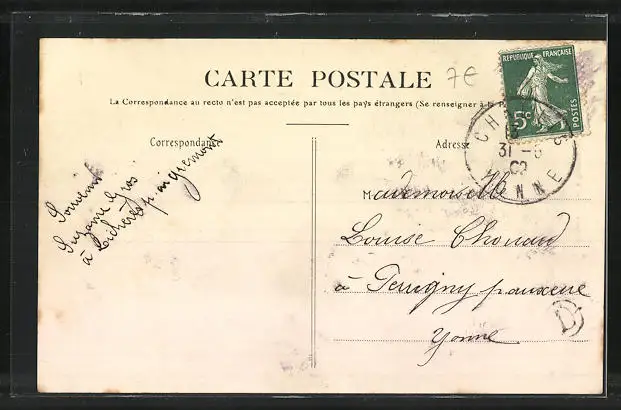 CARTE POSTALE
7€
La Correspondance au recto n'est pas acceptée par tous les pays étrangers (Se renseigner à la P
REPUBLIQUE FRANÇAISE
5c
POSTES
CH
31 - 
YONNE
Correspondance
Adresse
Souvenir
Suzanne Gros
à Lichères p. aigremont
Mademoiselle
Louise Chouard
à Perrigny p auxerre
Yonne
D